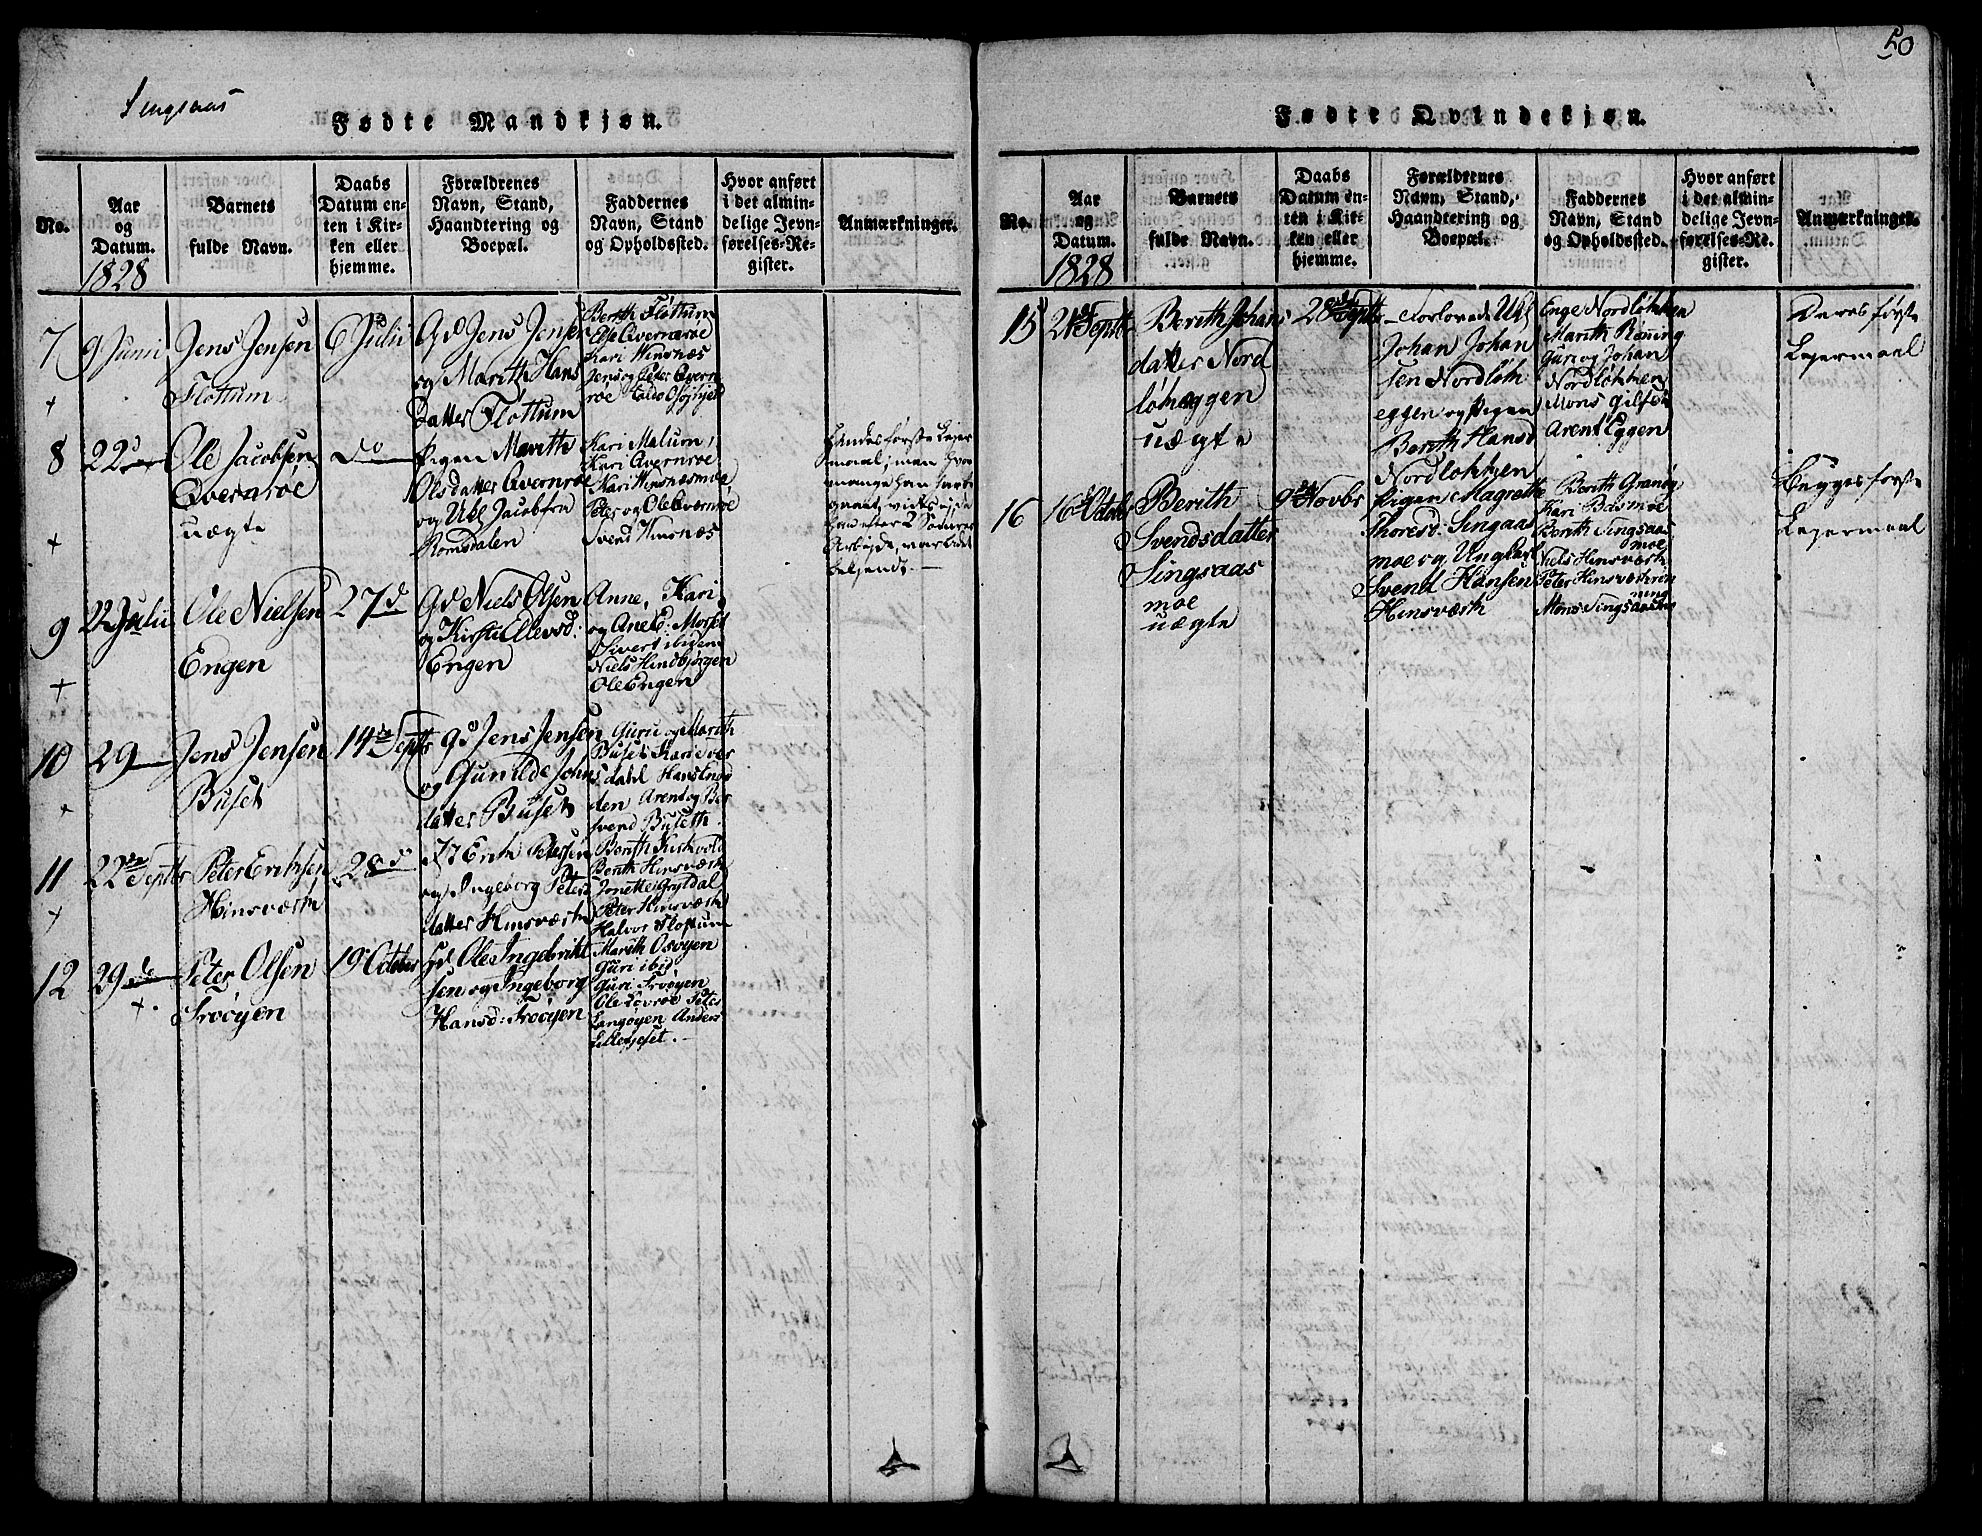 50
Singsaas
Fødte Mandkjøn.
No.
Aar
og
Datum.
1828
Barnets
fulde Navn.
Daabs
Datum en-
ten i Kir-
ken eller
hjemme.
Forældrenes
Navn, Stand,
Haandtering og
Boepæl.
Faddernes
Navn, Stand
og Opholdssted.
Hvor anført
i det almin-
delige Jevn-
førelses-Re-
gister.
Anmærkninger.
7
9 Juni
Jens Jensen
Flottum
6 Julii
Gd Jens Jensen
og Marith Hans
datter Flottum
Berith Flottum
Kari Winsnæs
8
22
Ole Jacobsen
Qvernrøe
uægte
do
Pigen Marith
Olsdatter Qvernrøe
og Ukl Jacobsen
Romsdalen
Kari Malum,
Kari Qvernrøe
Kari Winsnæsmoe
Peter og Ole Qvernrøe
Svend Winsnæs
9
22 Julii
Ole Nielsen
Engen
27 d
Gd Niels Olsen
og Kirsti Ellevsd:
Engen
Anne, Kari
og Ane E: Morset
Sivert ibiden
Niels Hindbjørgen
Ole Engen
10
29
Jens Jensen
Buset
14 de Septbr
Gd Jens Jensen
og Gunilde Johns
datter Buset
Guru og Marith
Buset Kari
dahl Hans
den Arent og
Svend Buseth
11
22 de Septbr
Peter Eriksen
Hinsværk
28 d
Erik Petersen
og Ingeborg Peters
datter Hinsværk
Berith Kirkvold
Berith Hinsværk
Jonette Gryldal
Peter Hinsværk
Halvor Flottum
12
29 de
Peter Olsen
Frøøyen
19 Octbr
Gd Ole Ingebrikt
sen og Ingeborg
Hansd: Frøøyen
Marith Osøyen
Guri ibid
Guri Frøøyen
Langøyen Anders
Fødte Qvindekjøn.
No.
Aar
og
Datum.
1828
Barnets
fulde Navn.
Daabs
Datum en-
ten i Kir-
ken eller
hjemme.
Forældrenes
Navn, Stand,
Haandtering og
Boepæl.
Faddernes
Navn, Stand
og Opholdssted.
Hvor anført
i det almin-
delige Jevn-
førelses-Re-
gister.
Anmærkninger.
15
21 Septbr
Berith Johans
datter Nord
løheggen
uægte
28 Septbr
Forlovede Ukl
Johan Johan
sen Nordløh
eggen og Pigen
Berith Hansd
Nordløkken
Enge Nordløkken
Marith Rønning
Guri og Johan
Nordløkken
Mons Gilset
Arent Eggen
Deres første
Leiermaal
16
16 Octobr
Berith
Svendsdatter
Singsaas
moe
uægte
9 Novbr
Pigen Magrethe
Thoresd: Singsaas
moe og Ungkarl
Svend Hansen
Hinsværk
Berith Granøy
Kari Bøsmoe
Berith Singsaas
moe
Niels Hinsværk
Peter Hinsværk
Mons Singsaas
Begges første
Leiermaal